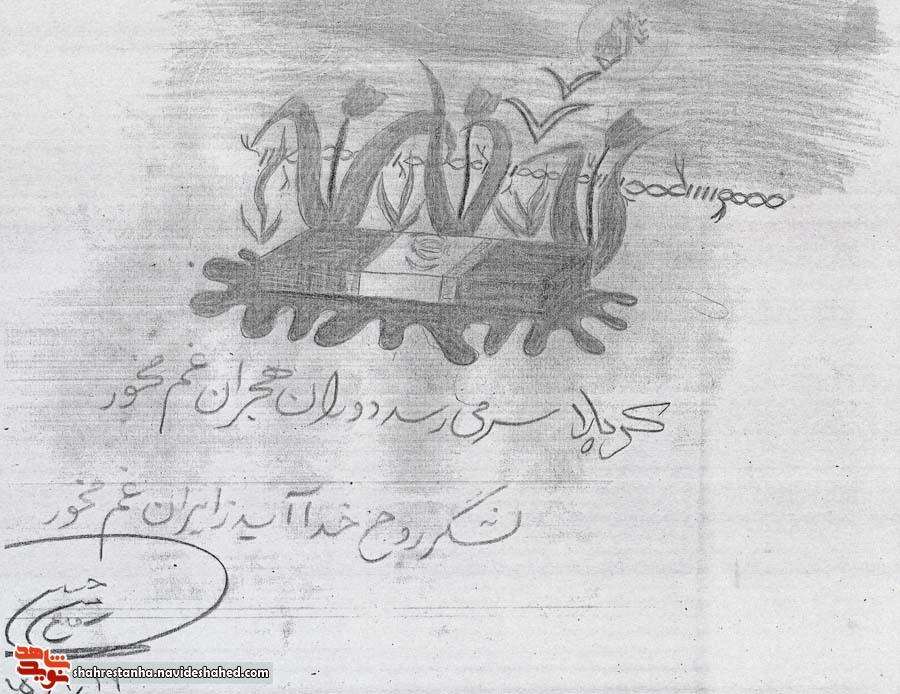 کربلا سر می رسد دوران هجران غم مخور
لشکر روح خدا آید ز ایران غم مخور
حسین
نوید شاهد
shahrestanha.navideshahed.com